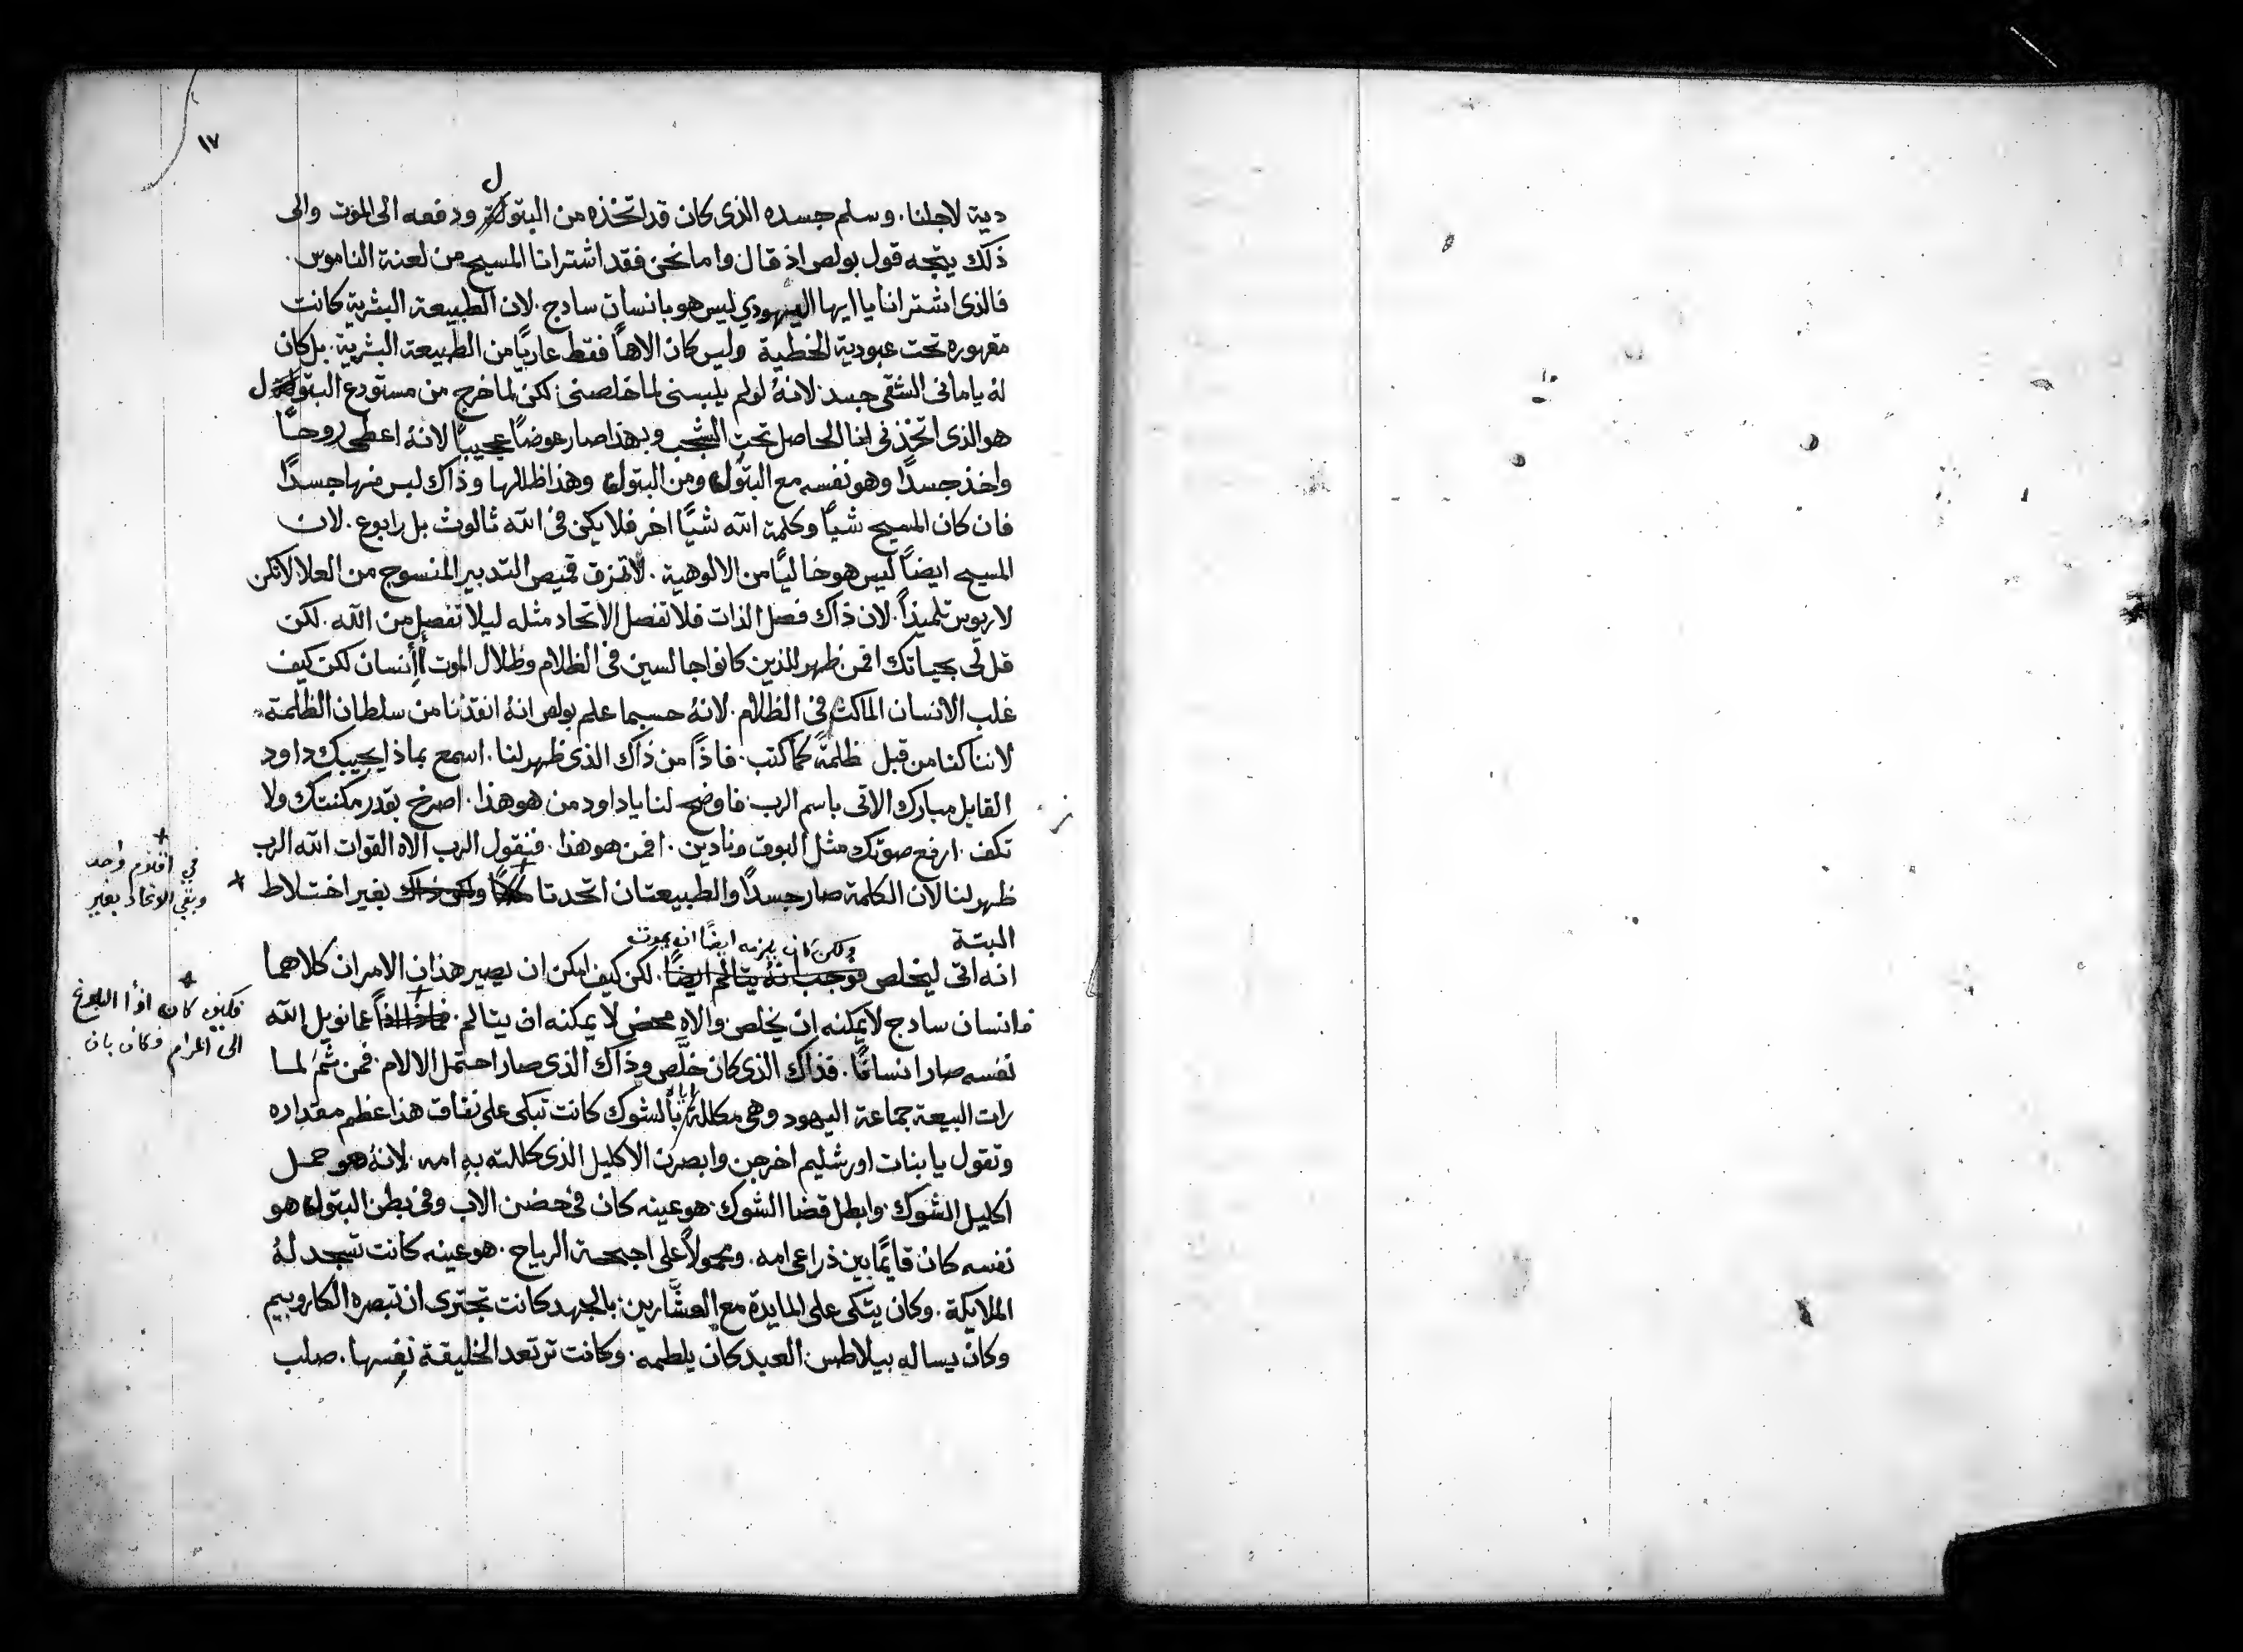 ١٧
دية لاجلنا. وسلم جسده الذى كان قد اتخذه من البتول ودفعه الى الموت والى
ذلك يتجه قول بولص اذ قال واما نحن فقد اشترانا المسيح من لعنة الناموس.
فالذى اشترانا يا ايها اليهودي ليس هو بانسان سادج. لان الطبيعة البشرية كانت
مقهوره تحت عبودية الخطية وليس كان الاهاً فقط عاريًا من الطبيعة البشرية. بل كان
لهُ يا مانى الشقى جسد. لانهُ لو لم يلبسنى لما خلصنى. لكن لما خرج من مستودع البتول
هو الذى اتخذنى انا الحاصل تحت الشجب وبهذا صار عوضاً عجيبًا لانهُ اعطى روحًا
واخذ جسدًا وهو نفسه مع البتول ومن البتول وهذا ظللها وذاك لبس منها جسدًا
فان كان المسيح شيًا وكلمة الله شيًا اخر فلا يكن فى الله ثالوث بل رابوع. لان
المسيح ايضاً ليس هو خاليًا من الالوهية. لا تمزق قميص التدبير المنسوج من العلا لا تكن
لاريوس تلميذاً. لان ذاك فصل الذات فلا تفصل الاتحاد مثله ليلا تفصل من الله. لكن
قل لى بحياتك افمن ظهر للذين كانوا جالسين فى الظلام وظلال الموت أانسان لكن كيف
غلب الانسان الماكث فى الظلام. لانهُ حسبما علم بولص انهُ انقذنا من سلطان الظلمة.
لاننا كنا من قبل ظلمةً كما كتب. فاذاً من ذاك الذى ظهر لنا. اسمع بماذا يجيبك داود
القايل مبارك الاتى باسم الرب. فاوضح لنا يا داود من هو هذا. اصرخ بقدر مكنتك ولا
تكف. ارفع صوتك مثل البوق ونادين. افمن هو هذا. فيقول الرب الاه القوات الله الرب
ظهر لنا لان الكلمة صار جسدًا والطبيعتان اتحدتا ولكن ذاك بغير اختلاط +
+
في اقنوم واحد
وبقي الاتحاد بغير
البتة
ولكن كان يلزمه ايضًا ان يموت
انه اتى ليخلص فوجب انهُ يتالم ايضًا. لكن كيف امكن ان يصير هذان الامران كلاهما
فانسان سادج لا يمكنه ان يخلص. والاه محض لا يمكنه ان يتالم. فماذا اذاً عمانويل الله
+
فكيف كان اذًا البلوغ
الى المرام فكان بان
نفسه صار انسانًا. فذاك الذى كان خلَّص وذاك الذى صار احتمل الالام. فمن ثَمَّ لما
رات البيعة جماعة اليهود وهى مكللة بالشوك كانت تبكى على نفاق هذا عظم مقداره
وتقول يا بنات اورشليم اخرجن وابصرن الاكليل الذى كللته به امه. لانهُ هو حمل
اكليل الشوك. وابطل قضا الشوك. هو عينه كان فى حضن الاب وفى بطن البتول هو
نفسه كان قايمًا بين ذراعى امه. ومحمولاً على اجنحة الرياح. هو عينه كانت تسجد لهُ
الملايكة. وكان يتكى على المايدة مع العشَّارين. بالجهد كانت تجترى ان تبصره الكاروبيم
وكان يساله بيلاطس. العبد كان يلطمه. وكانت ترتعد الخليقة نفسها. صلب